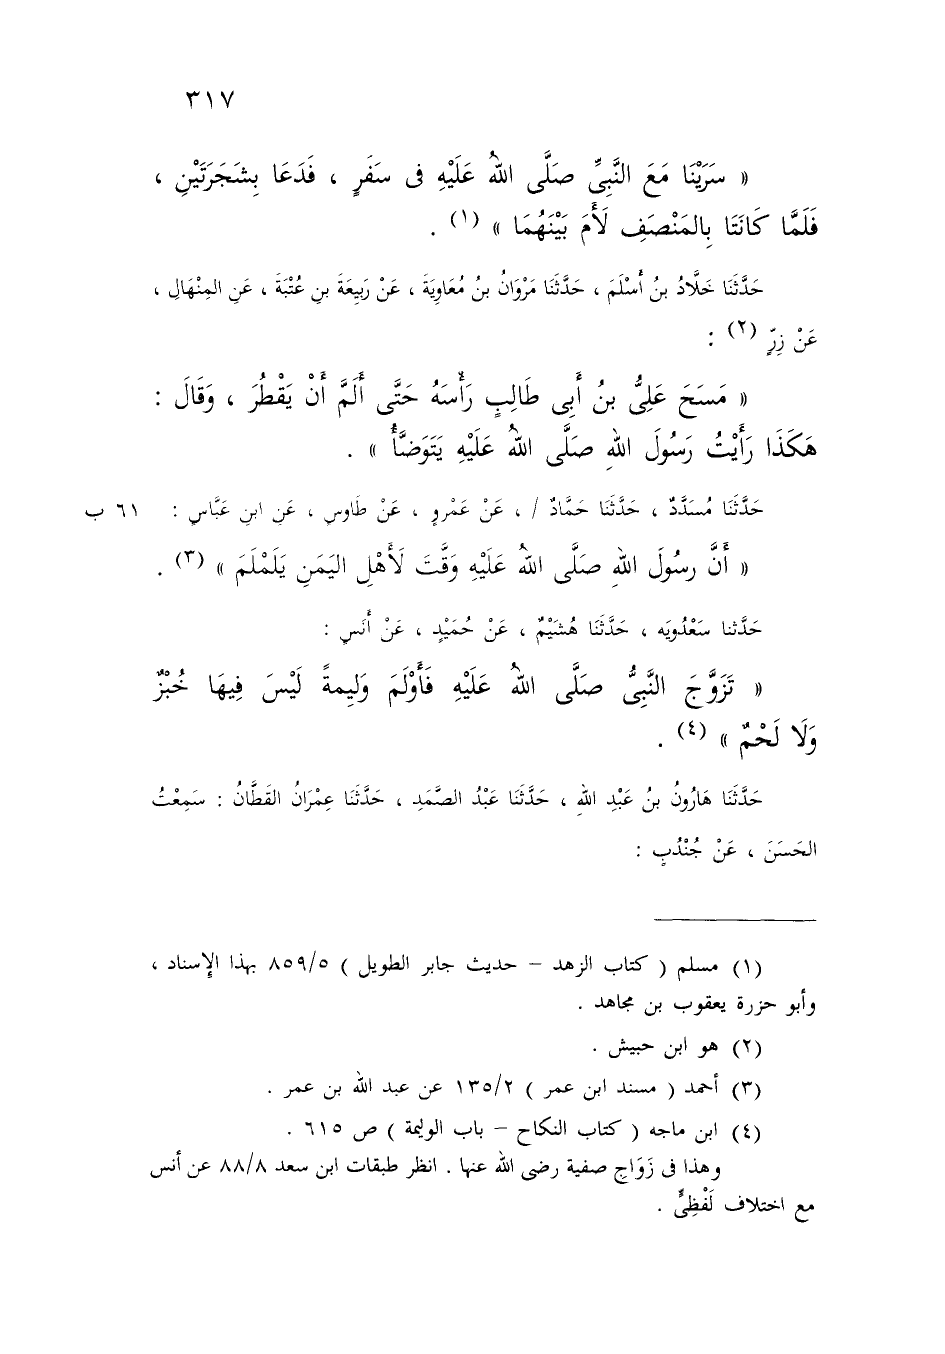 ٣١٧
« سَرَيْنَا مَعَ النَّبِىِّ صَلَّى اللهُ عَلَيْهِ فى سَفَرٍ ، فَدَعَا بِشَجَرَتَيْنِ ،
فَلَمَّا كَانَتَا بِالمَنْصَفِ لَأَمَ بَيْنَهُمَا » (١) .
حَدَّثَنَا خَلَّادُ بنُ أَسْلَمَ ، حَدَّثَنَا مَرْوَانُ بنُ مُعَاوِيَةَ ، عَنْ رَبِيعَةَ بنِ عُتْبَةَ ، عَنِ المِنْهَالِ ،
عَنْ زِرٍّ (٢) :
« مَسَحَ عَلِىُّ بنُ أَبِى طَالِبٍ رَأْسَهُ حَتَّى أَلَمَّ أَنْ يَقْطُرَ ، وَقَالَ :
هَكَذَا رَأَيْتُ رَسُولَ اللهِ صَلَّى اللهُ عَلَيْهِ يَتَوَضَّأُ » .
حَدَّثَنَا مُسَدَّدٌ ، حَدَّثَنَا حَمَّادٌ / ، عَنْ عَمْرٍو ، عَنْ طَاوسٍ ، عَنِ ابنِ عَبَّاسٍ : ٦١ ب
« أَنَّ رسُولَ اللهِ صَلَّى اللهُ عَلَيْهِ وَقَّتَ لَأَهْلِ اليَمَنِ يَلَمْلَمَ » (٣) .
حَدَّثنا سَعْدُويَه ، حَدَّثَنَا هُشَيْمٌ ، عَنْ حُمَيْدٍ ، عَنْ أَنَسٍ :
« تَزَوَّجَ النَّبِىُّ صَلَّى اللهُ عَلَيْهِ فَأَوْلَمَ وَلِيمةً لَيْسَ فِيهَا خُبْزٌ
وَلَا لَحْمٌ » (٤) .
حَدَّثَنَا هَارُونُ بنُ عَبْدِ اللهِ ، حَدَّثَنَا عَبْدُ الصَّمَدِ ، حَدَّثَنَا عِمْرَانُ القَطَّانُ : سَمِعْتُ
الحَسَنَ ، عَنْ جُنْدُبٍ :
(١) مسلم ( كتاب الزهد – حديث جابر الطويل ) ٨٥٩/٥ بهذا الإسناد ،
وأبو حزرة يعقوب بن مجاهد .
(٢) هو ابن حبيش .
(٣) أحمد ( مسند ابن عمر ) ١٣٥/٢ عن عبد الله بن عمر .
(٤) ابن ماجه ( كتاب النكاح – باب الوليمة ) ص ٦١٥ .
وهذا فى زَوَاجِ صفية رضى الله عنها . انظر طبقات ابن سعد ٨٨/٨ عن أنس
مع اختلاف لَفْظِىٍّ .